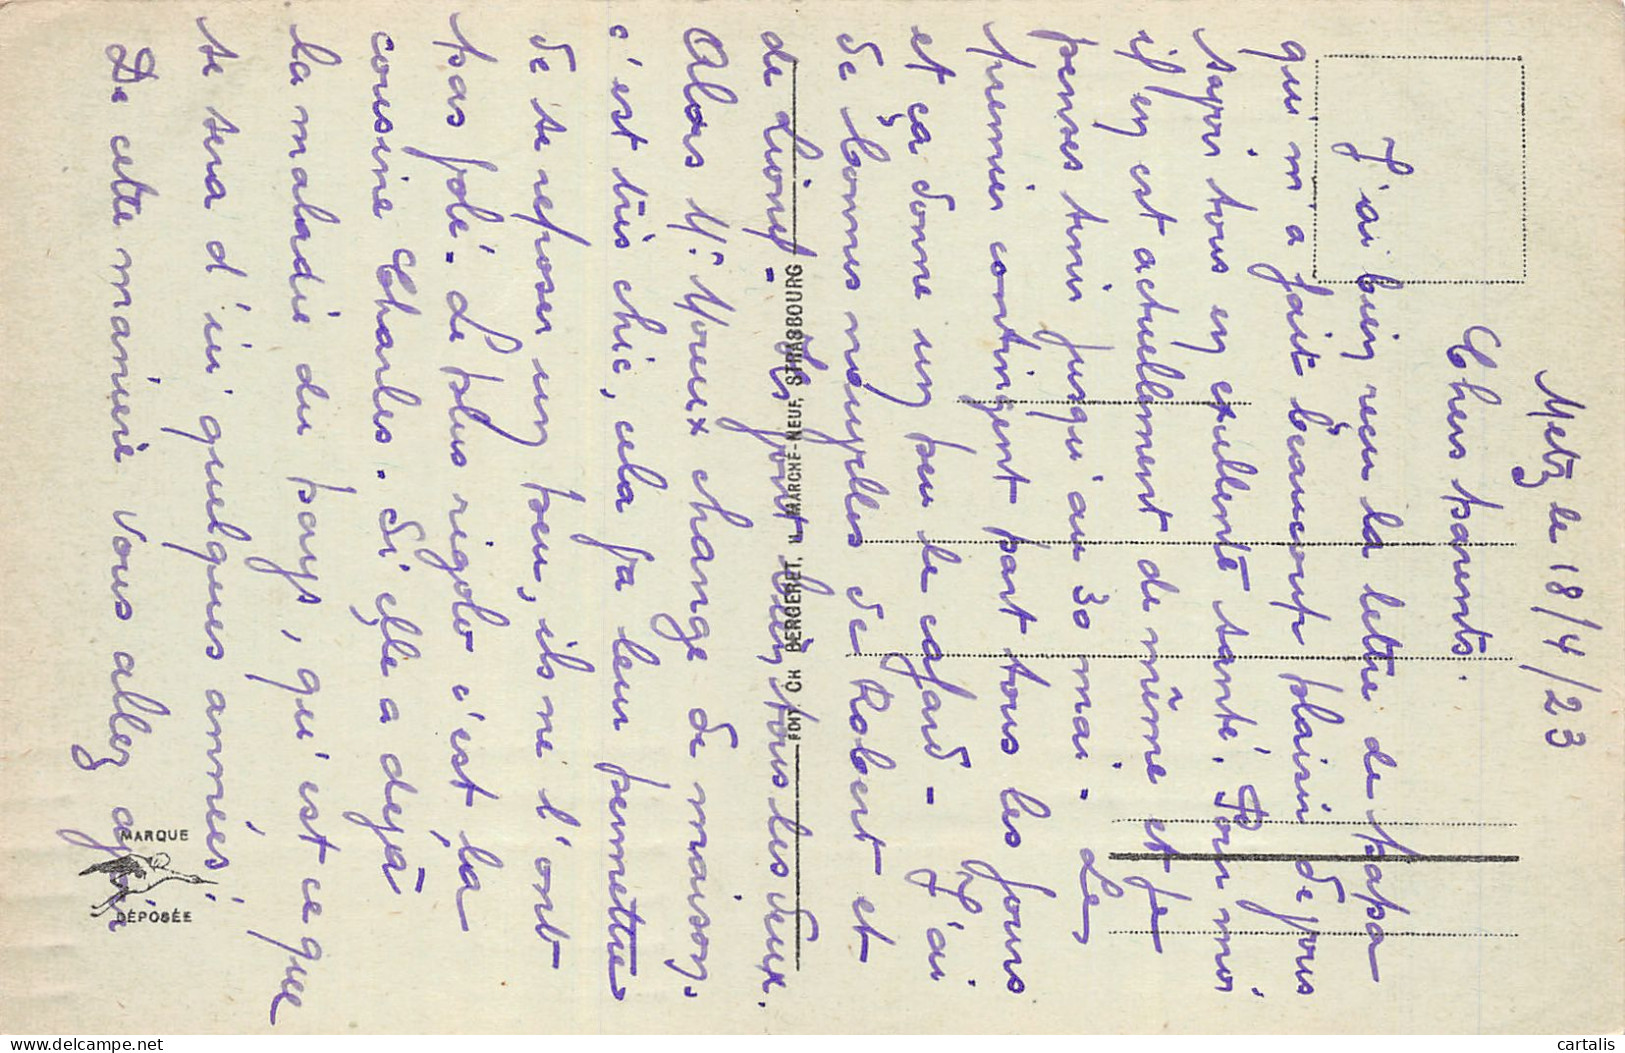 Metz le 18/4/23
Chers parents.
J'ai bien reçu la lettre de papa
qui m'a fait beaucoup plaisir de vous
savoir tous en excellente santé. Pour moi
il en est actuellement de même et je
penses tenir jusqu'au 30 mai. Le
premier contingent part tous les jours
et ça donne un peu le cafard - J'ai
de bonnes nouvelles de Robert et
de Lionel - Ils font bien tous les deux.
Alors Mr Voreux change de maison.
c'est très chic, cela va leur permettre
de se reposer un peu, ils ne l'ont
pas volé. Le plus rigolo c'est la
cousine Charles. Si elle a dejà
la maladie du pays, qu'est ce que
se sera d'ici quelques années!
De cette manière vous allez
PHOT. CH. BERGERET, MARCHÉ-NEUF, STRASBOURG
MARQUE
DÉPOSÉE
cartalis